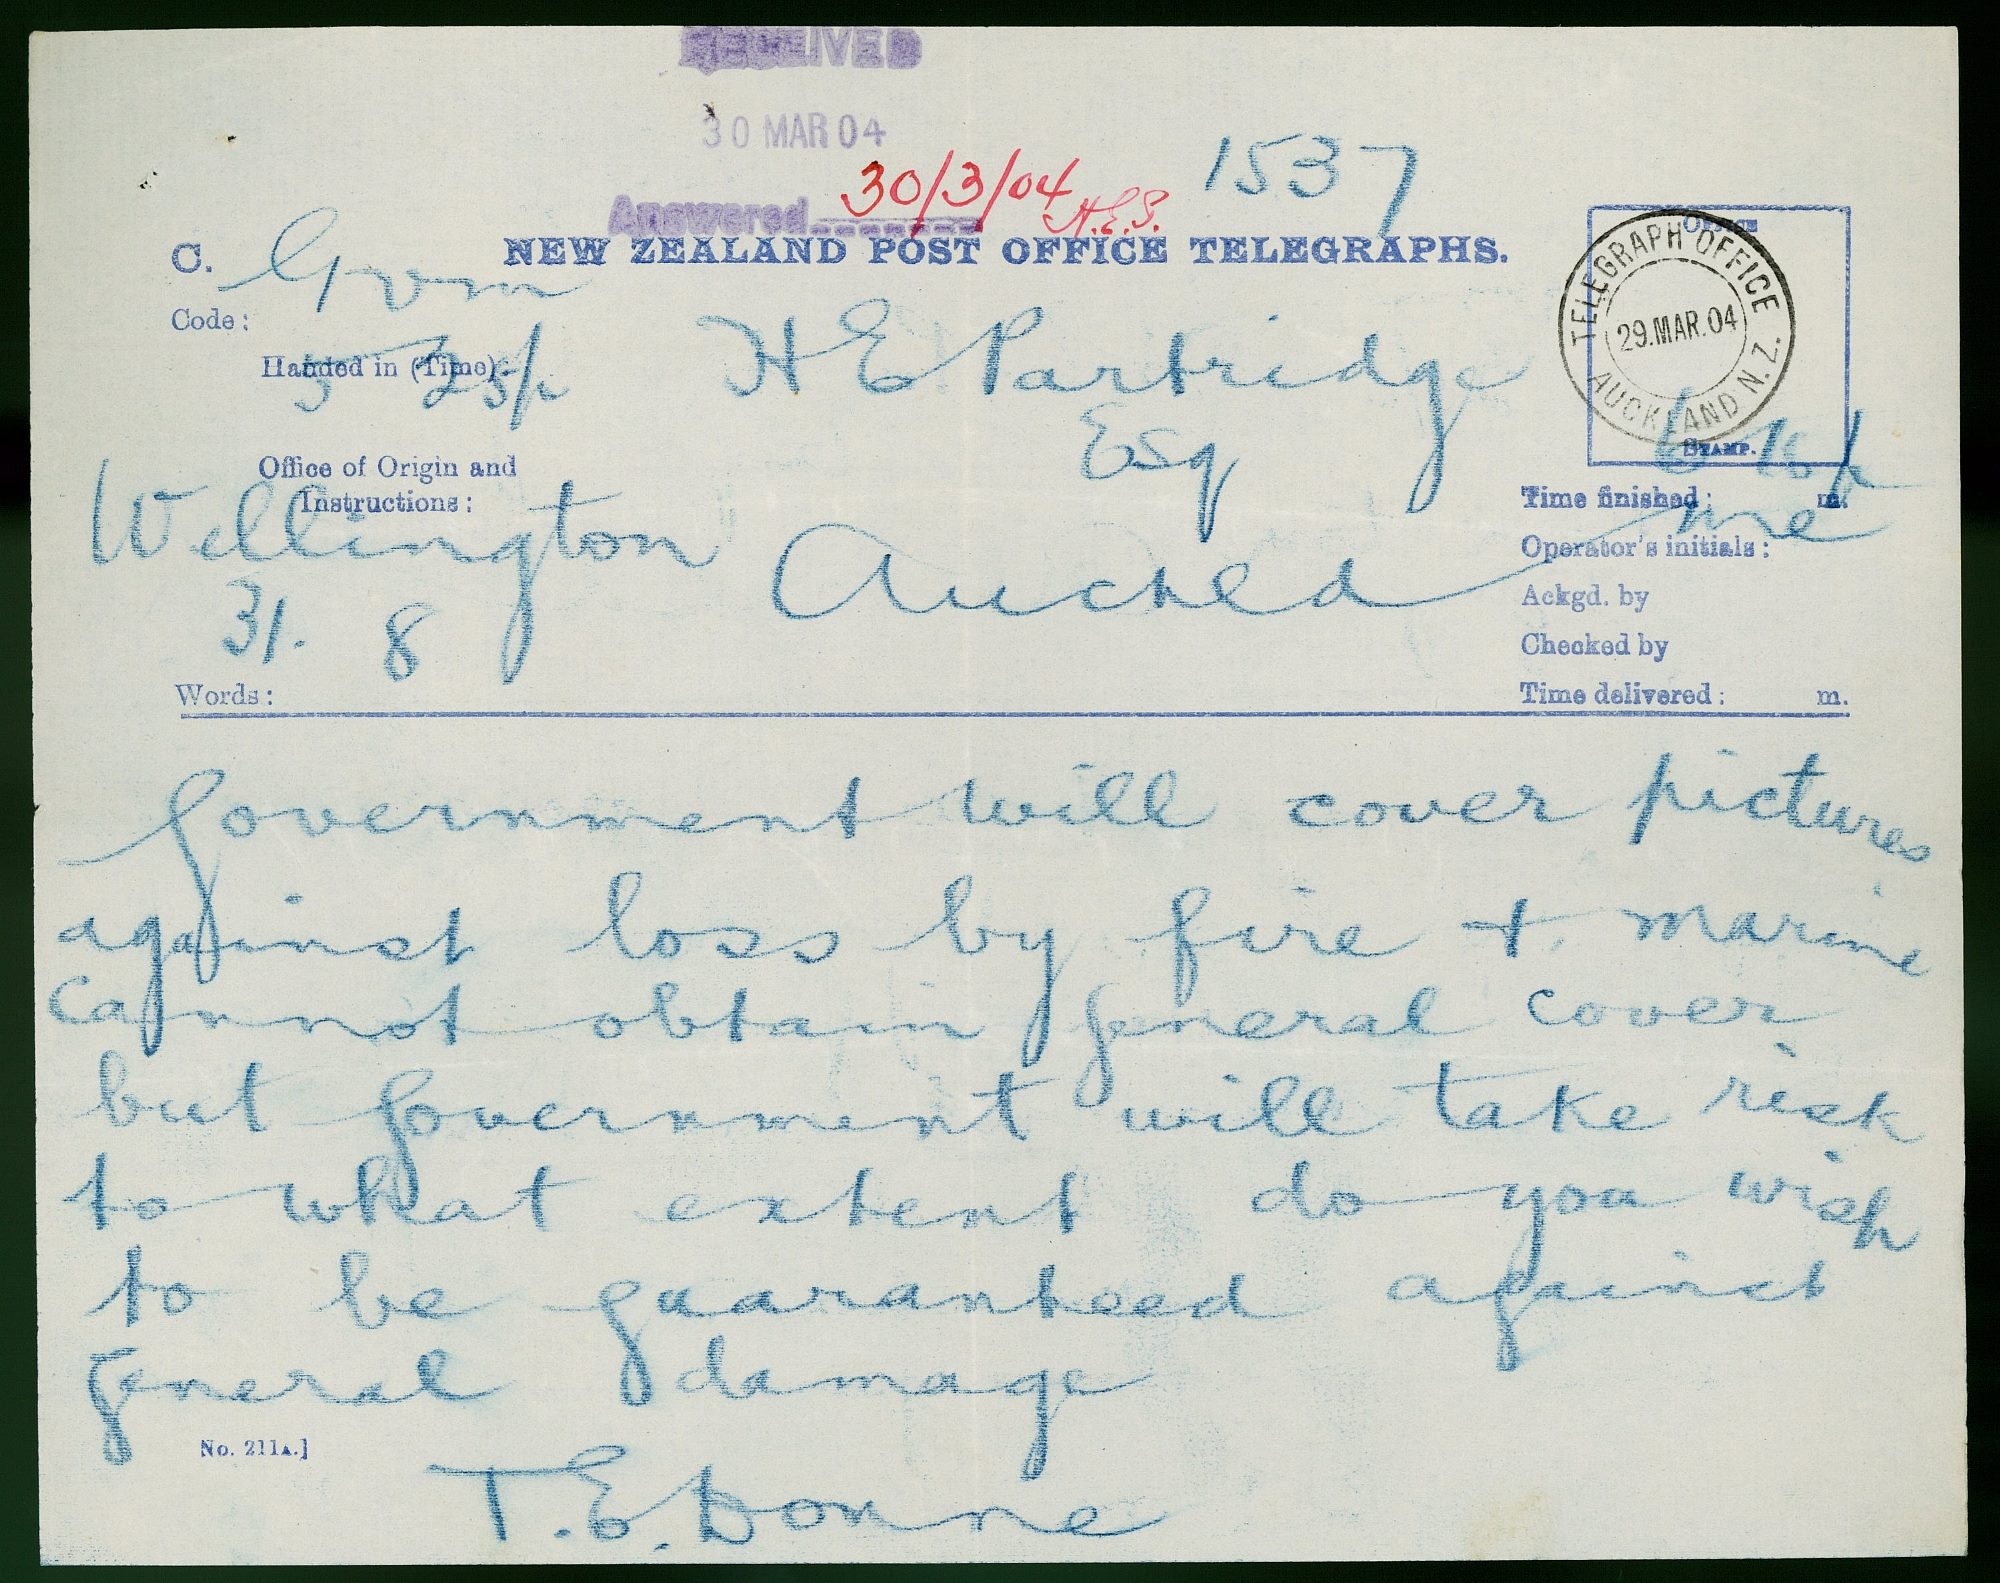 RECEIVED
30 MAR 04
Answered 30/3/04 H.E.P.
1537
C. Govm
NEW ZEALAND POST OFFICE TELEGRAPHS.
Code:
Handed in (Time):
5 25p
H E Partridge
Esq
Auckld
Office of Origin and
Instructions:
Wellington
31. 8
Words:
OFFICE
STAMP.
TELEGRAPH OFFICE
29.MAR.04
AUCKLAND N.Z.
Time finished: m.
Operator's initials:
Ackgd. by
Checked by
Time delivered: m.
Government will cover pictures
against loss by fire + marine
Cannot obtain general cover
but Government will take risk
to what extent do you wish
to be guaranteed against
General damage
No. 211A.]
T. E. Donne